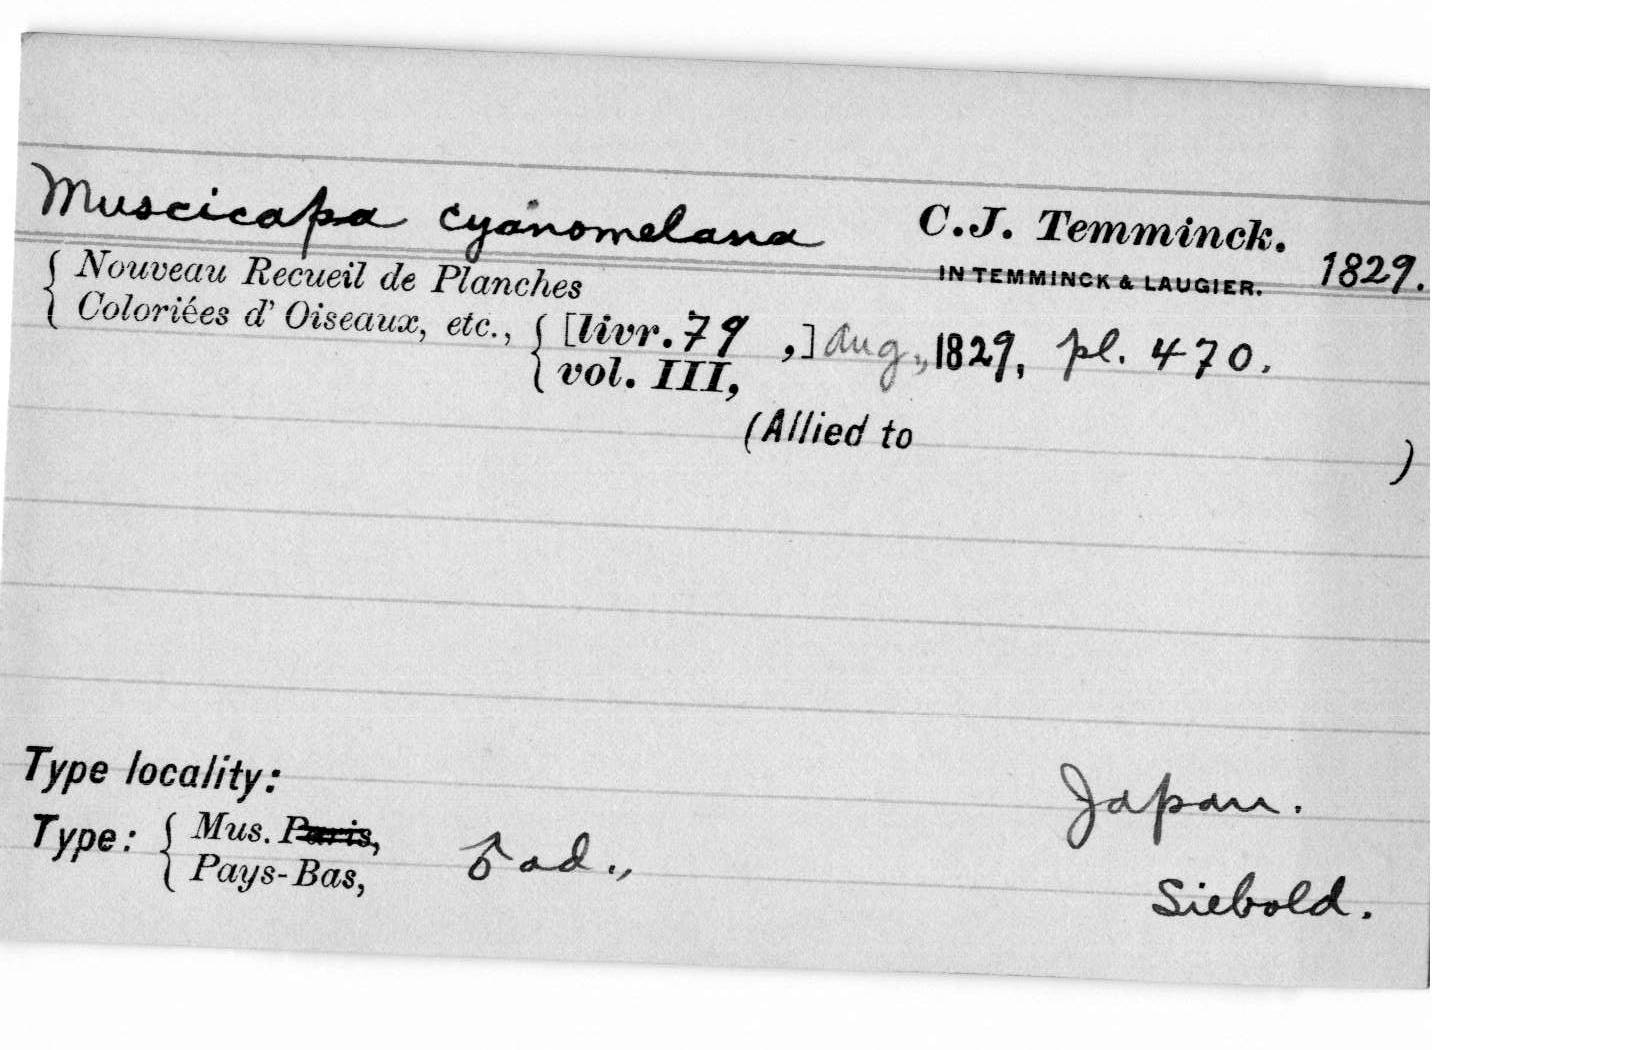 Muscicapa cyanomelana C.J. Temminck. 1829.
IN TEMMINCK & LAUGIER.
{ Nouveau Recueil de Planches
Coloriées d' Oiseaux, etc., { [livr. 79 ,] Aug., 1829, pl. 470.
vol. III,
(Allied to )
Type locality: Japan.
Type: { Mus. Paris,
Pays-Bas, ♂ ad., Siebold.